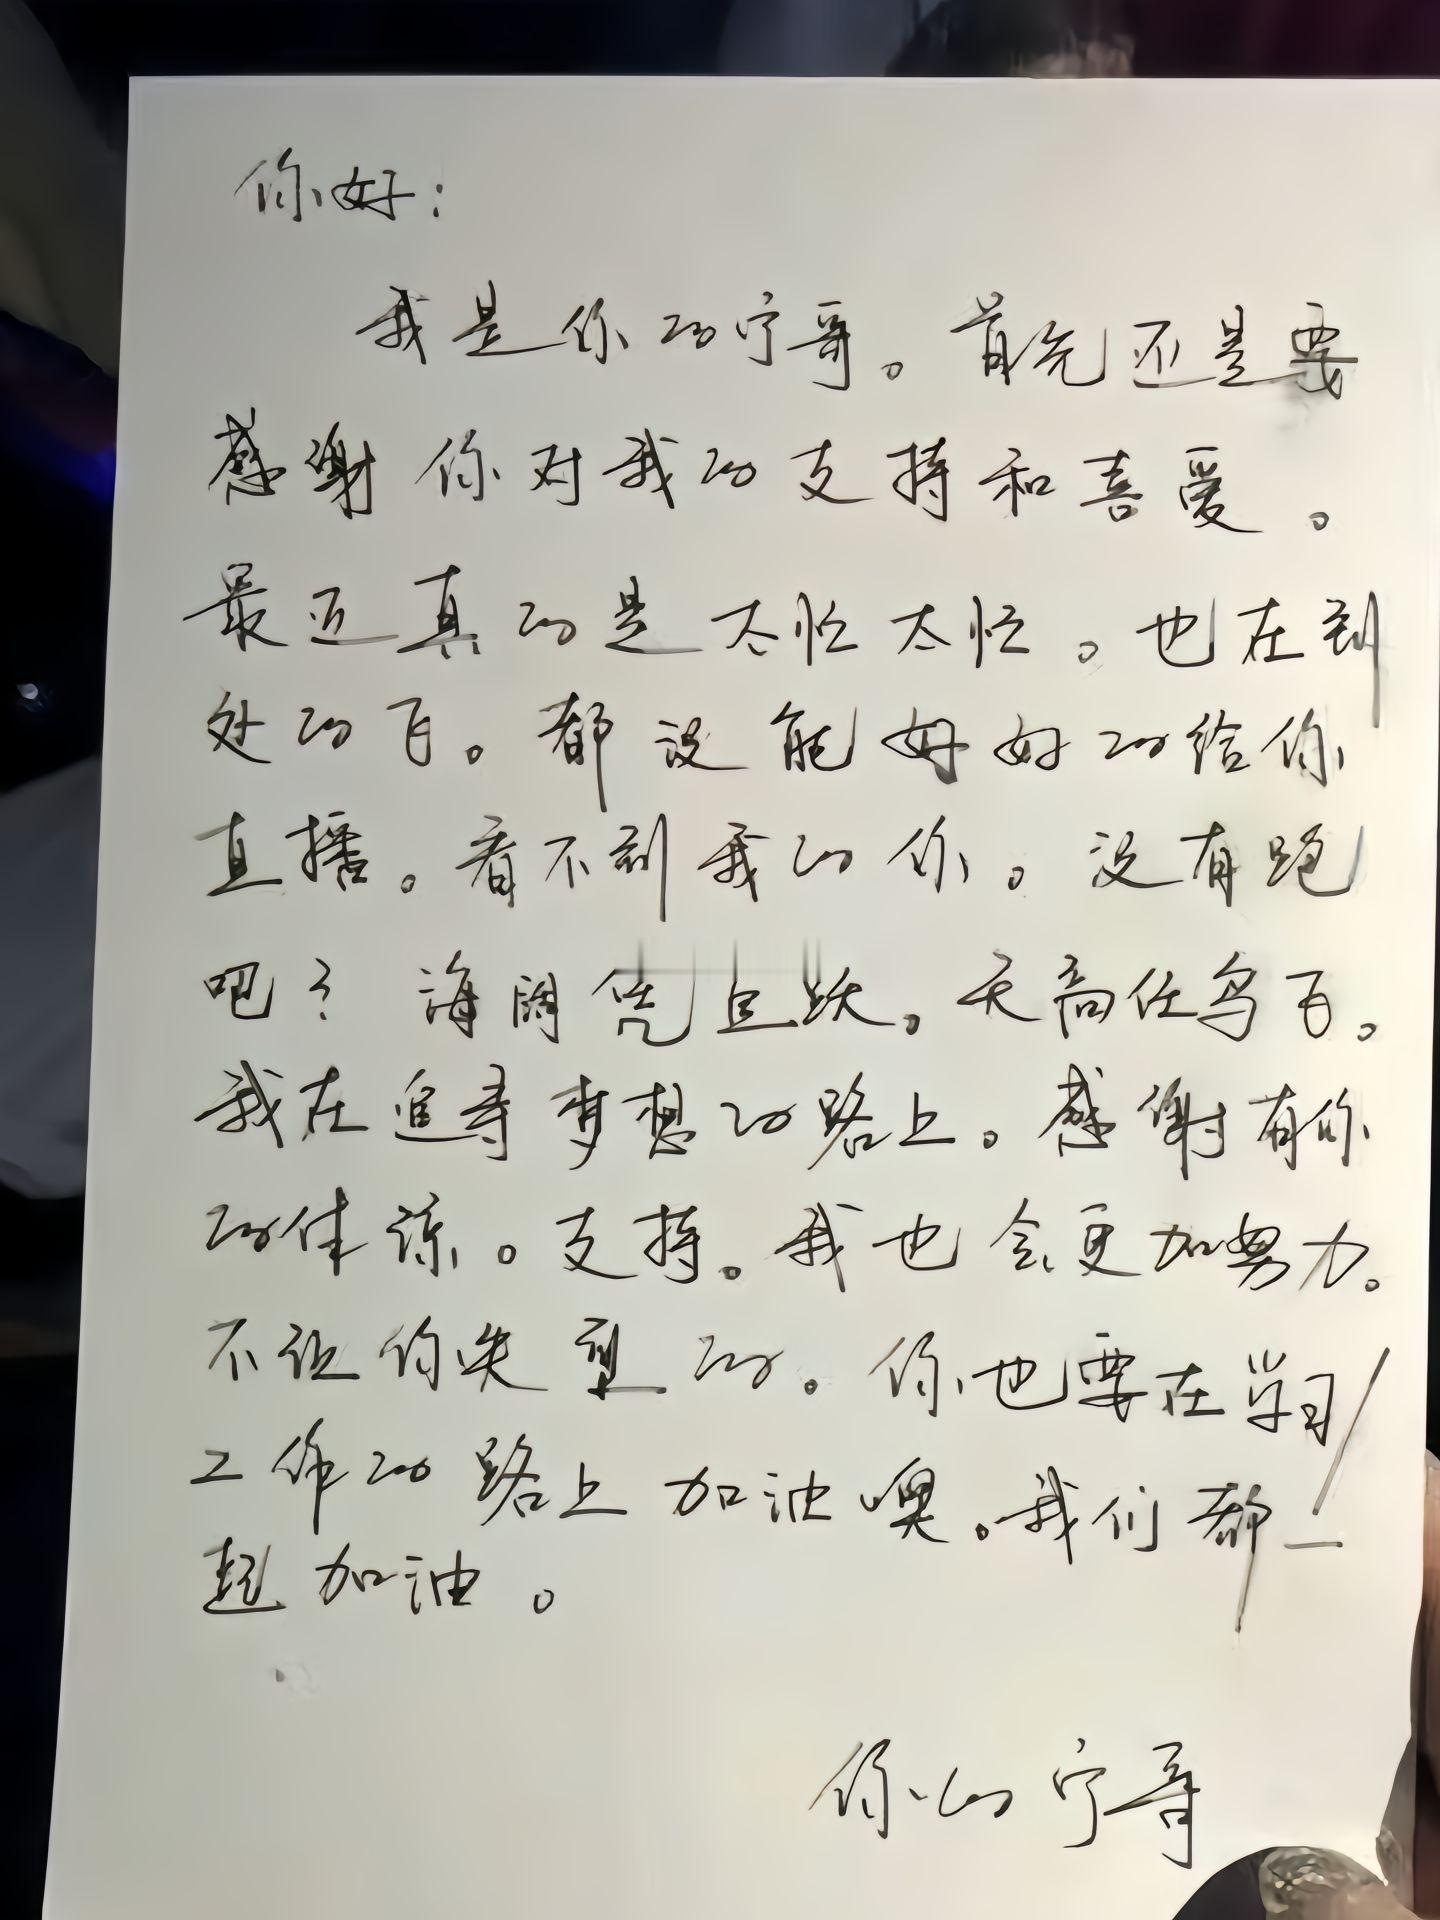 你好：
我是你的宁哥。首先还是要
感谢你对我的支持和喜爱。
最近真的是太忙太忙。也在到
处的飞。都没能好好的给你
直播。看不到我的你。没有跑
吧？海阔凭鱼跃。天高任鸟飞。
我在追寻梦想的路上。感谢有你
的伴。支持。我也会更加努力。
不让你失望的。你也要在学习/
工作的路上加油噢。我们都一
起加油。
你的宁哥